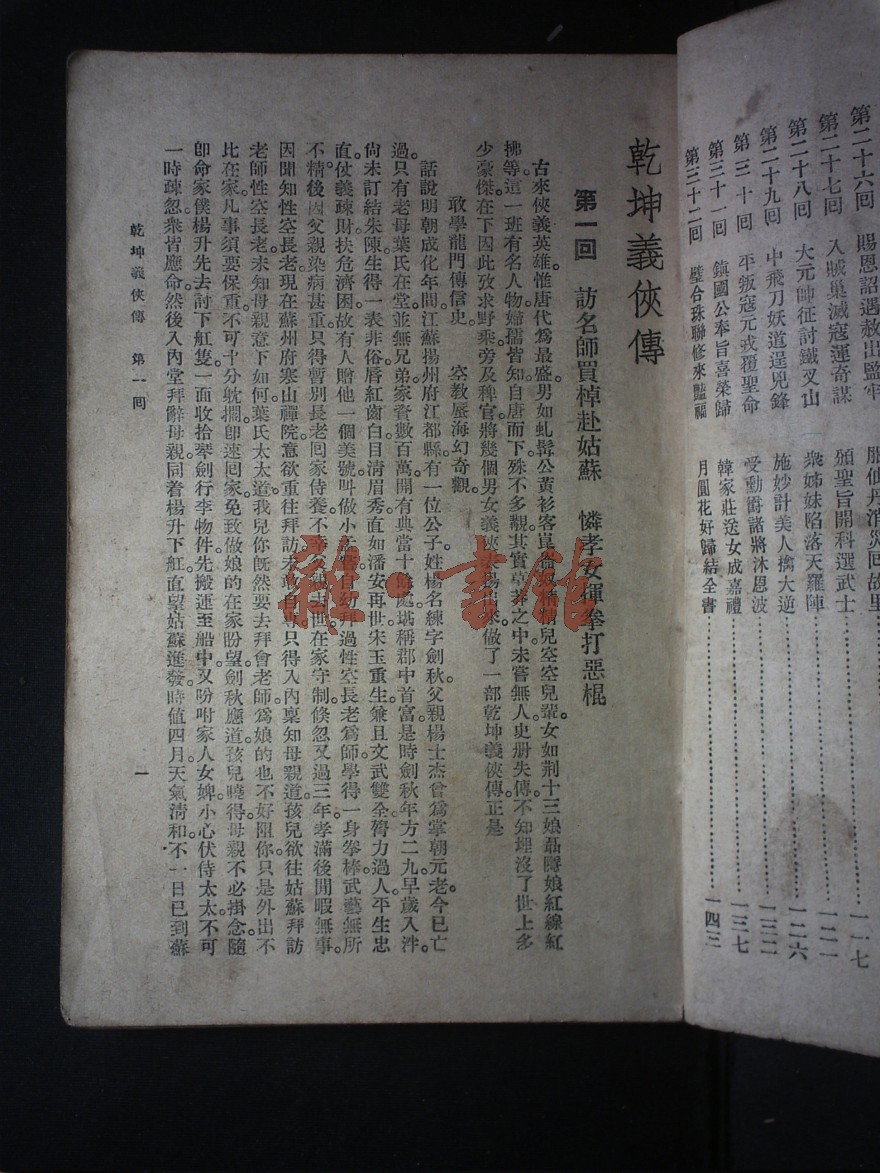 第二十六回　賜恩詔遇赦出監牢　服仙丹消災回故里……一一七
第二十七回　入賊巢滅寇運奇謀　頒聖旨開科選武士……一二一
第二十八回　大元帥征討鐵叉山　衆姊妹陷落天羅陣……一二六
第二十九回　中飛刀妖道逞兇鋒　施妙計美人擒大逆……一三二
第三十回　平叛寇元戎覆聖命　受勳爵諸將沐恩波……一三七
第三十一回　鎮國公奉旨喜榮歸　韓家莊送女成嘉禮……一四三
第三十二回　璧合珠聯修來豔福　月圓花好歸結全書
乾坤義俠傳
第一回　訪名師買棹赴姑蘇　憐孝女揮拳打惡棍
古來俠義英雄。惟唐代爲最盛。男如虬髯公黃衫客崑崙奴精精兒空空兒輩。女如荆十三娘聶隱娘紅線紅
拂等。這一班有名人物。婦孺皆知。自唐而下。殊不多觀。其實草莽之中。未嘗無人。史册失傳。不知埋沒了世上多
少豪傑。在下因此攷求野乘。旁及稗官。將幾個男女義俠表揚出來。做了一部乾坤義俠傳。正是
敢學龍門傳信史。　空敎蜃海幻奇觀。
話說明朝成化年間。江蘇揚州府江都縣。有一位公子。姓楊名練字劍秋。父親楊士杰。曾爲掌朝元老。今已亡
過。只有老母葉氏在堂。並無兄弟。家資數百萬。開有典當十餘處。堪稱郡中首富。是時劍秋年方二九。早歲入泮。
尙未訂結朱陳。生得一表非俗。唇紅齒白。目淸眉秀。直如潘安再世。宋玉重生。兼且文武雙全。膂力過人。平生忠
直。仗義疎財。扶危濟困。故有人贈他一個美號。叫做小孟嘗。自幼拜過性空長老爲師。學得一身拳棒。武藝無所
不精。後因父親染病甚重。只得暫別長老。囘家侍養。不幸父親去世。在家守制。倐忽又過三年。孝滿後閒暇無事。
因聞知性空長老。現在蘇州府寒山禪院。意欲重往拜訪。未敢自專。只得入內稟知母親道。孩兒欲往姑蘇拜訪
老師性空長老。未知母親意下如何。葉氏太太道。我兒你旣然要去拜會老師。爲娘的也不好阻你。只是外出不
比在家。凡事須要保重。不可十分躭擱。卽速囘家。免致做娘的在家盼望。劍秋應道。孩兒曉得。母親不必掛念。隨
卽命家僕楊升先去討下舡隻。一面收拾琴劍行李物件。先搬運至船中。又吩咐家人女婢。小心伏侍太太。不可
一時疎忽。衆皆應命。然後入內堂拜辭母親。同着楊升下舡。直望姑蘇進發。時値四月。天氣淸和。不一日已到蘇
乾坤義俠傳　第一囘
一
雜·書館